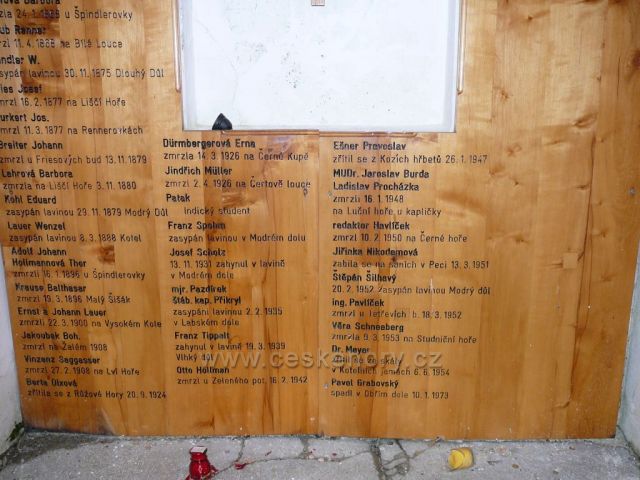 Barbora
zmrzla 24.1.1828 u Špindlerovky
Renner
zmrzl 11.4.1868 na Bílé Louce
W.
zasypán lavinou 30.11.1875 Dlouhý Důl
Josef
zmrzl 16.2.1877 na Liščí Hoře
Jos.
zmrzl 11.3.1877 na Rennerovkách
Breiter Johann
zmrzl u Friesových bud 13.11.1879
Lahrová Barbora
zmrzla na Liščí Hoře 3.11.1880
Kohl Eduard
zasypán lavinou 29.11.1879 Modrý Důl
Lauer Wenzel
zasypán lavinou 8.3.1888 Kotel
Adolf Johann
Hollmannová Ther
zmrzli 16.1.1896 u Špindlerovky
Krause Balthasar
zmrzl 19.3.1896 Malý Šišák
Ernst a Johann Lauer
zmrzli 22.3.1900 na Vysokém Kole
Jakoubek Boh.
zmrzl na Žalém 1908
Vinzenz Saggasser
zmrzl 27.2.1908 na Lví Hoře
Berta Ölxová
zřítila se z Růžové Hory 20.9.1924
Dürmbergerová Erna
zmrzla 14.3.1926 na Černé Kupě
Jindřich Müller
zmrzl 2.4.1926 na Čertově louce
Patak
indický student
Franz Spohm
zasypán lavinou v Modrém dolu
Josef Scholz
13.11.1931 zahynul v lavině
v Modrém dole
mjr. Pazdírek
štáb. kap. Přikryl
zasypáni lavinou 2.2.1935
v Labském dole
Franz Tippalt
zahynul v lavině 19.3.1939
Vlhký důl
Otto Hollman
zmrzl u Zeleného pot. 16.2.1942
Ešner Pravoslav
zřítil se z Kozích hřbetů 26.1.1947
MUDr. Jaroslav Burda
Ladislav Procházka
zmrzli 16.1.1948
na Luční hoře u kapličky
redaktor Havlíček
zmrzl 10.2.1950 na Černé hoře
Jiřinka Nikodemová
zabila se na saních v Peci 13.3.1951
Štěpán Šilhavý
20.2.1952 zasypán lavinou Modrý důl
ing. Pavlíček
zmrzl u Jetřevích b. 18.3.1952
Věra Schneeberg
zmrzla 9.3.1953 na Studniční hoře
Dr. Mayer
zřítil se ze skály
v Kotelních jamách 6.6.1954
Pavel Grabovský
spadl v Obřím dole 10.1.1973
www.ceskehory.cz